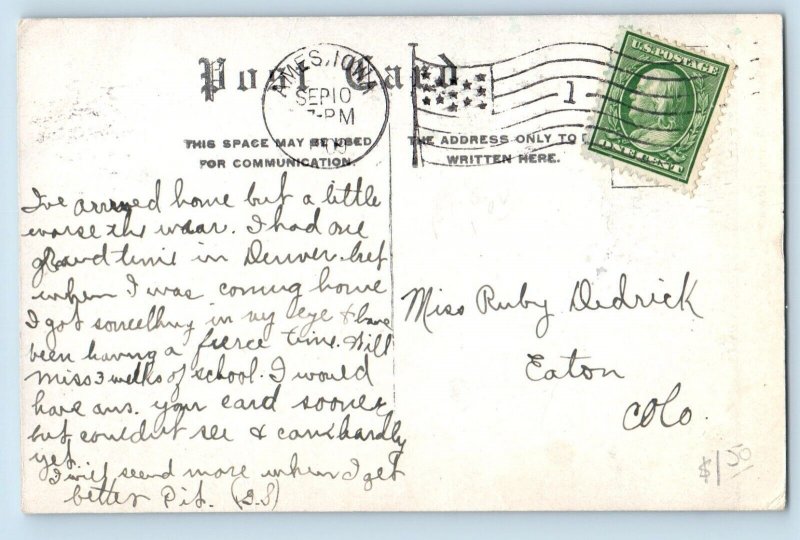 Post Card
AMES, IOWA
SEP 10
7-PM
09
1
U.S. POSTAGE
ONE CENT
THIS SPACE MAY BE USED
FOR COMMUNICATION.
THE ADDRESS ONLY TO BE
WRITTEN HERE.
I've arrived home but a little
worse the wear. I had one
grand time in Denver but
when I was coming home
I got something in my eye & have
been having a fierce time. Will
miss 3 weeks of school. I would
have ans. your card sooner
but couldn't see & can hardly
yet.
I will send more when I get
better
Miss Ruby Dedrick
Eaton
Colo.
$1 50